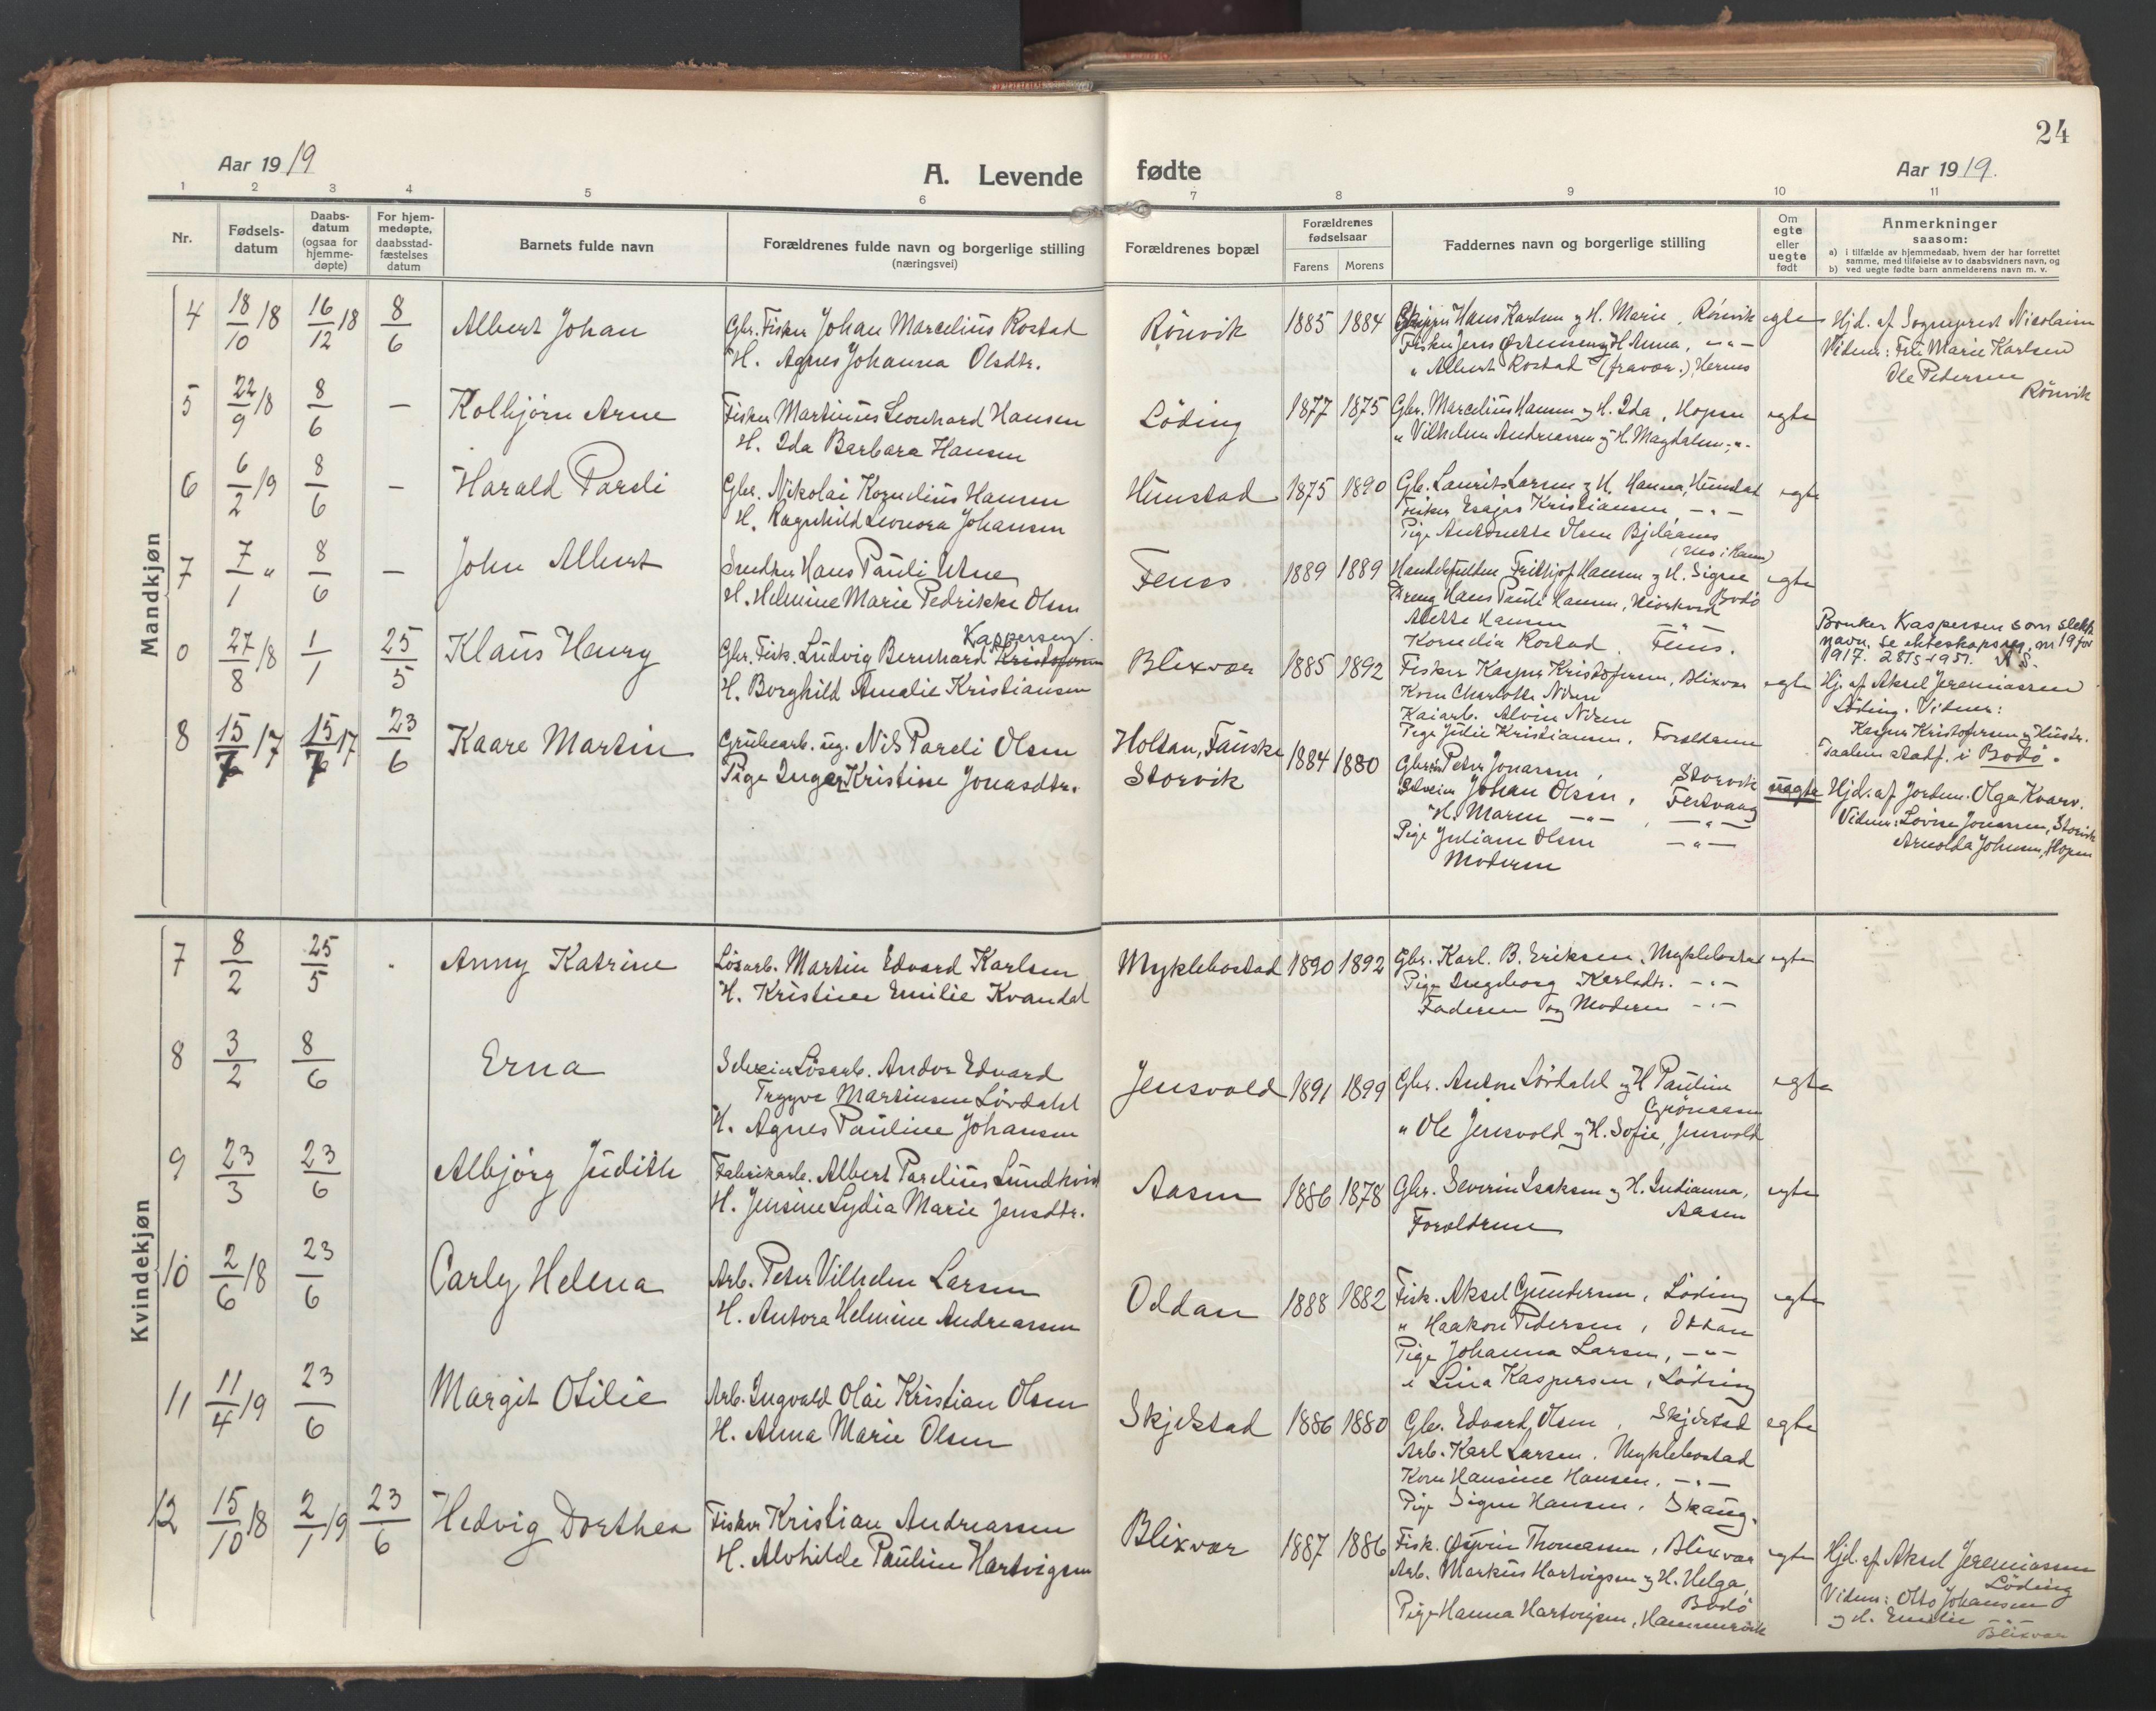 24
Aar 1919
A. Levende
fødte
Aar 1919.
1 2 3 4 5 6 7 8 9 10 11
Nr.
Fødsels-
datum
Daabs-
datum
(ogsaa for
hjemme-
døpte)
For hjem-
medøpte,
daabsstad-
fæstelses
datum
Barnets fulde navn
Forældrenes fulde navn og borgerlige stilling
(næringsvei)
Forældrenes bopæl
Forældrenes
fødselsaar
Farens Morens
Faddernes navn og borgerlige stilling
Om
egte
eller
uegte
født
Anmerkninger
saasom:
a) i tilfælde av hjemmedaab, hvem der har forrettet
samme, med tilføielse av to daabsvidners navn, og
b) ved uegte fødte barn anmelderens navn m. v.
Mandkjøn
4 18/10 18 16/12 18 8/6 Albert Johan
Gbr. Fisker Johan Marcelius Rostad
H. Agnes Johanna Olsdtr.
Rönvik 1885 1884
Hans Karlsen og H. Marie, Rönvik
Fisker Jens Østensen og H. Anna, -"-
" Albert Rostad (fravær.), Hernes
egte
Hjd. af Sogneprest Nicolaisen
Vidner: Fru Marie Karlsen
Ole Pedersen
Rönvik
5 22/9 18 8/6 — Kolbjörn Arne
Fisker Martinus Leonhard Hansen
H. Ida Barbara Hansen
Löding 1877 1875
Gbr. Marcelius Hansen og H. Ida, Hopen
" Vilhelm Andreassen og H. Magdalen, -"-
egte
6 6/2 19 8/6 — Harald Pareli
Gbr. Nikolai Kornelius Hansen
H. Ragnhild Leonora Johansen
Hunstad 1875 1890
Gb. Laurits Larsen og H. Hanna, Hunstad
Fisker Esajas Kristiansen -"-
Pige Antonette Olsen Bjelaanes
egte
7 7/1 " 8/6 — John Albert
Snedker Hans Pauli Utne
H. Helmine Marie Pedrikke Olsen
Fenes 1889 1889
Fridtjof Hansen og H. Signe
Bodö
Dreng Hans Pauli Hansen,
Alette Hansen -"-
Kornelia Rostad. Fenes.
egte
0 27/8 18 1/1 25/5 Klaus Henry
Kaspersen.
Gbr. Fisk. Ludvig Bernhard Kristofersen
H. Borghild Amalie Kristiansen
Blixvær 1885 1892
Fisker Kasper Kristofersen, Blixvær
Kone Charlotte Nren
Kaiarb. Alvin Nren
Pige Julie Kristiansen. Forældrene
egte
Bruker Kaspersen som slekts
navn. Se ekteskapsreg. nr 19 for
1917. 28/5 1951. A S.
Hj. af Aksel Jeremiassen
Löding. Vidner:
Kasper Kristofersen og Hustr.
Daaben stadf. i Bodö.
8 15/7 17 15/7 17 23/6 Kaare Martin
Grubearb. ug. Nils Pareli Olsen
Pige Inger Kristine Jonasdtr.
Holtan, Fauske
Storvik
1884 1880
Peter Jonassen, Storvik
Johan Olsen, Festvaag
H. Maren -"-, -"-
Pige Juliane Olsen -"-
Moderen
uegte
Hjd. af Jordm. Olga Kvarv.
Vidner: Lovise Jonassen, Storvik
Arnolda Johnsen, Hopen
Kvindekjøn
7 8/2 25/5 Anny Katrine
Lösarb. Martin Edvard Karlsen
H. Kristine Emilie Kvandal
Myklebostad 1890 1892
Gbr. Karl. B. Eriksen, Myklebostad
Pige Ingeborg Karlsdtr. -"-
Faderen og Moderen -"-
egte
8 3/2 8/6 Erna
Lösarb. Andor Edvard
Trygve Martinsen Lövdahl
H. Agnes Pauline Johansen
Jensvold 1891 1899
Gbr. Anton Lövdahl og H. Pauline
Grönaasen
" Ole Jensvold og H. Sofie, Jensvold
egte
9 23/3 23/6 Albjörg Judith
Fabrikarb. Albert Parelius Lundkvist
H. Jensine Lydia Marie Jensdtr.
Aasen 1886 1878
Gbr. Severin Isaksen og H. Indianna,
Aasen
Forældrene
egte
10 2/6 18 23/6 Carly Helena
Arb. Peter Vilhelm Larsen
H. Antora Helmine Andreassen
Oddan 1888 1882
Fisk. Aksel Gundersen, Löding
" Haakon Pedersen, Oddan
Pige Johanna Larsen, -"-
" Lina Kaspersen, Löding
egte
11 11/4 19 23/6 Margit Otilie
Arb. Ingvald Olai Kristian Olsen
H. Anna Marie Olsen
Skjelstad 1886 1880
Gbr. Edvard Olsen, Skjelstad
Arb. Karl Larsen. Myklebostad
Kone Hansine Hansen. -"-
Pige Signe Hansen. Skaug.
egte
12 15/10 18 2/1 19 23/6 Hedvig Dorthea
Fisker Kristian Andreassen
H. Alvhilde Pauline Hartvigsen
Blixvær 1887 1886
Fisk. Øivin Thomassen, Blixvær
Arb. Markus Hartvigsen og H. Helga,
Bodö
Pige Hanna Hartvigsen, Hammervik
egte
Hjd. af Aksel Jeremiassen
Löding
Vidner: Otto Johansen
og H. Emilie -"-
Blixvær